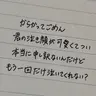 からかってごめん
君の泣き顔が可愛くてつい
本当に申し訳ないんだけど
もう一回だけ泣いてくれない?